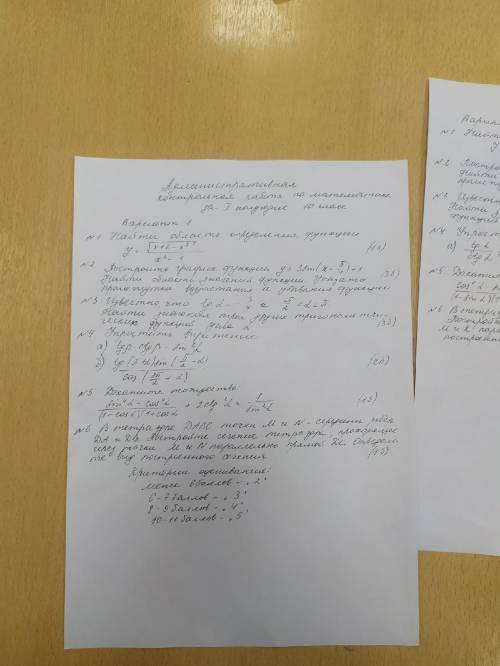 Административная
контрольная работа по математике
за I полугодие 10 класс
Вариант 1
№1 Найти область определения функции
y = √(x+2-x²) / x²-1 (1б)
№2 Построить график функции y = 3 sin(x - π/4) + 1
Найти область значений функции. Указать
промежутки возрастания и убывания функции
№3 Известно что tg α = - 3/4 и π/2 < α < π
Найти значения трех других тригонометри-
ческих функций угла α
№4 Упростить выражение:
а) tgβ · ctgβ - sin²α
б) sin(π/2 - α) / cos(3π/2 + α) (2б)
№5 Докажите тождество:
sin⁴α - cos⁴α / (1 - cosα)(1 + cosα) + 2ctg²α = 1 / sin²α
№6 В тетраэдре DABC точки M и N - середины рёбер
DA и DB. Постройте сечение тетраэдра, проходящее
через точки M и N параллельно прямой
те вид построенного сечения
Критерии оценивания:
менее 6 баллов - "2"
6-7 баллов - "3"
8-9 баллов - "4"
10-11 баллов - "5"
Вариан
№1 Найт
y
№2 Постро
Найти
№3 Извест
Найти
функций
№4 Упрост
а)
№5 Докажит
№6 В тетраэ
M и K
построен